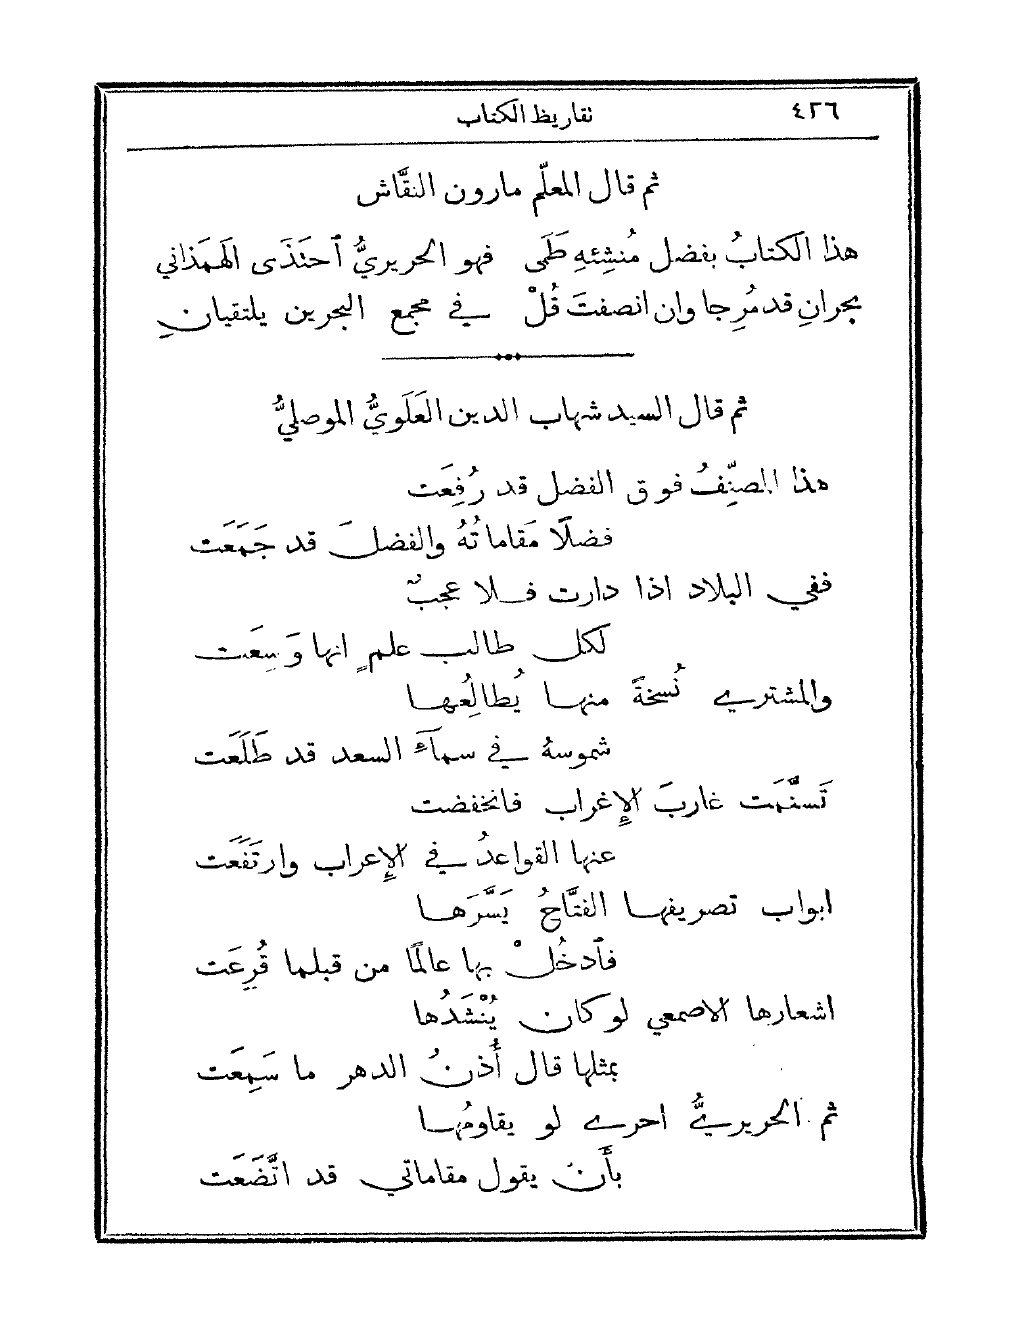 ٤٢٦ تقاريظ الكتاب
ثم قال المعلّم مارون النقَّاش
هذا الكتابُ بفضل مُنشِئهِ طَمَى فهو الحريريُّ ٱحتَذَى الهَمَذاني
بحرانِ قد مُرِجا وان انصفتَ قُلْ في مجمع البحرين يلتقيانِ
ثم قال السيد شهاب الدين العَلَويُّ الموصليُّ
هذا المصنِّفُ فوق الفضل قد رُفِعَت
فضلًا مَقاماتُهُ والفضلَ قد جَمَعَت
ففي البلاد اذا دارت فلا عجبٌ
لكل طالب علمٍ انها وَسِعَت
والمشتري نُسخةً منها يُطالِعُها
شموسهُ في سمآءَ السعد قد طَلَعَت
تَسنَّمَت غاربَ الإغراب فانخفضت
عنها القواعدُ في الإعراب وارتَفَعَت
ابواب تصريفها الفتَّاحُ يَسَّرَها
فٱدخُلْ بها عالمًا من قبلما قُرِعَت
اشعارها الاصمعي لو كان يُنْشَدُها
بمثلها قال أُذنُ الدهر ما سَمِعَت
ثم الحريريُّ احرى لو يقاومُها
بأَن يقول مقاماتي قد اتَّضَعَت